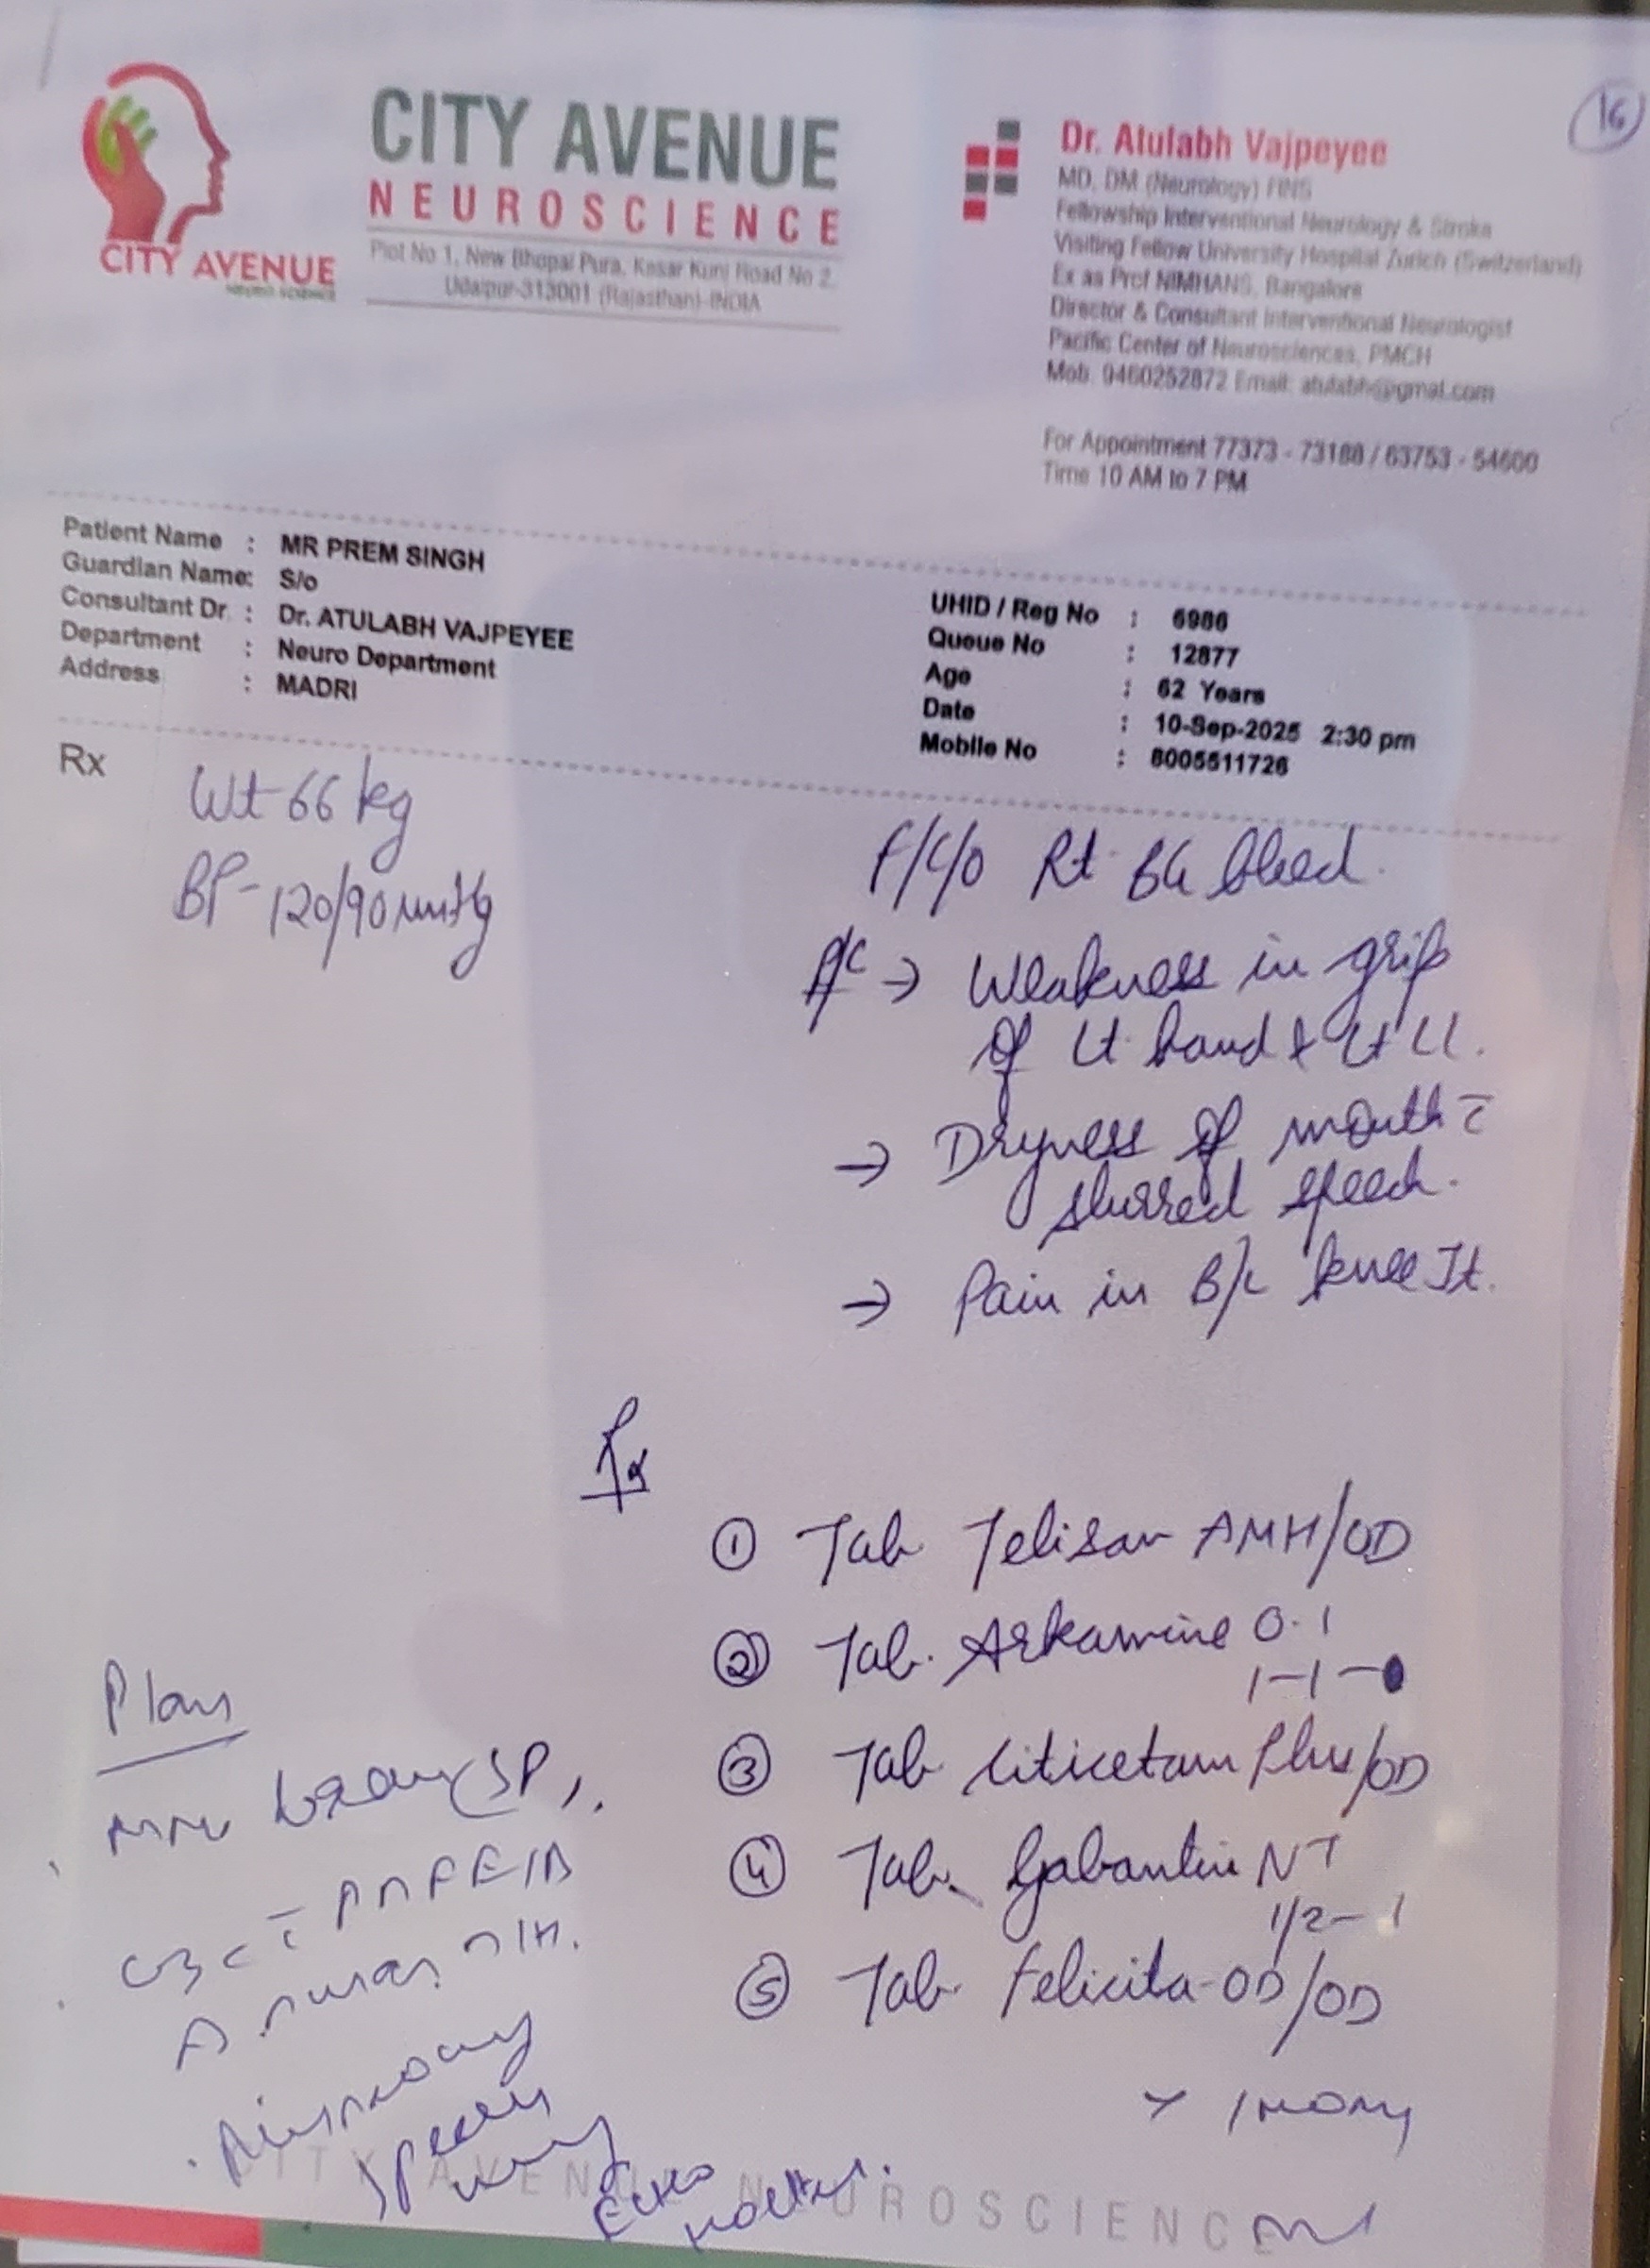 16
CITY AVENUE
NEUROSCIENCE
Plot No 1, New Bhopal Pura, Kesar Kunj Road No 2,
Udaipur-313001 (Rajasthan)-INDIA
CITY AVENUE
NEURO SCIENCE
Dr. Atulabh Vajpeyee
MD, DM (Neurology) FINS
Fellowship Interventional Neurology & Stroke
Visiting Fellow University Hospital Zurich (Switzerland)
Ex as Prof NIMHANS, Bangalore
Director & Consultant Interventional Neurologist
Pacific Center of Neurosciences, PMCH
Mob. 9460252872 Email:
For Appointment 77373 - 73188 / 63753 - 54600
Time 10 AM to 7 PM
Patient Name : MR PREM SINGH
Guardian Name: S/o
Consultant Dr. : Dr. ATULABH VAJPEYEE
Department : Neuro Department
Address : MADRI
UHID / Reg No : 6986
Queue No : 12877
Age : 62 Years
Date : 10-Sep-2025 2:30 pm
Mobile No : 8005511726
Rx
Wt-66 kg
BP-120/90 mmHg
F/C/O Rt. BG bleed.
→ Weakness in grip
of Lt. hand & Lt LL.
→ Dryness of mouth c̄
slurred speech.
→ Pain in B/L knee Jt.
Rx
① Tab Telisar AMH/OD
② Tab. Arkamine 0.1
1-1-
③ Tab Citicetam Plus/OD
④ Tab. Gabantin NT
1/2-1
⑤ Tab. Felicita-OD/OD
Plan
CITY AVENUE NEUROSCIENCE